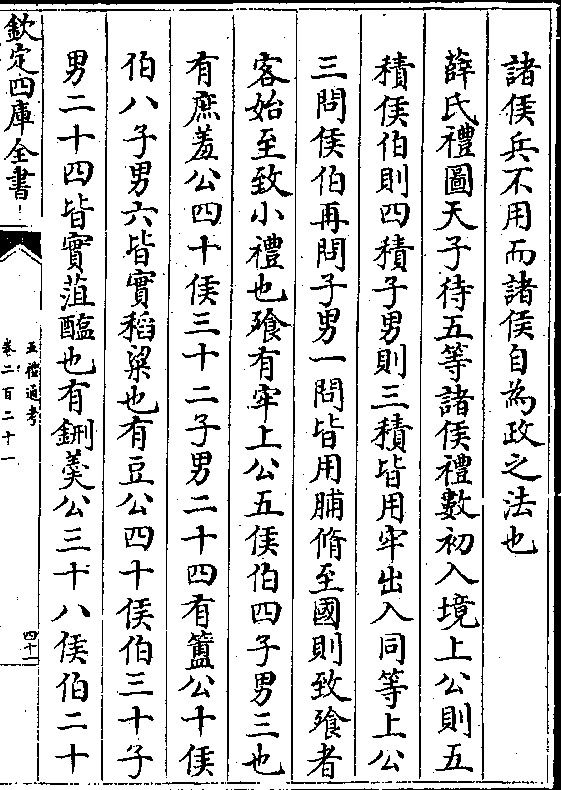 諸侯兵不用而諸侯自為政之法也
薛氏禮圖天子待五等諸侯禮數初入境上公則五
積侯伯則四積子男則三積皆用牢出入同等上公
三問侯伯再問子男一問皆用脯脩至國則致飱者
客始至致小禮也飱有牢上公五侯伯四子男三也
有庶羞公四十侯三十二子男二十四有簠公十侯
伯八子男六皆實稻粱也有豆公四十侯伯三十子
男二十四皆實菹醢也有鉶羹公三十八侯伯二十
欽定四庫全書
五禮通考
卷二百二十一
四十一